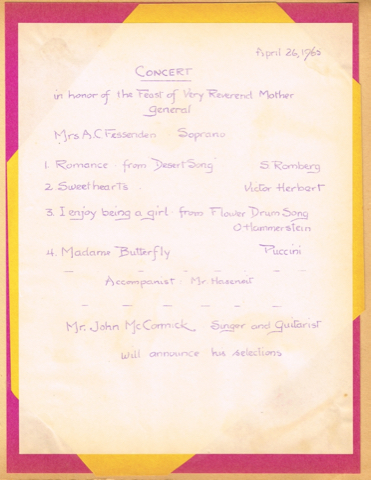 April 26, 1965
CONCERT
in honor of the Feast of Very Reverend Mother
General
Mrs A.C Fessenden . Soprano
1. Romance from "Desert Song" S. Romberg
2. Sweethearts . Victor Herbert
3. I enjoy being a girl from Flower Drum Song
O Hammerstein
4. Madame Butterfly Puccini
Accompanist . Mr
Mr. John McCormick, Singer and Guitarist
will announce his selections